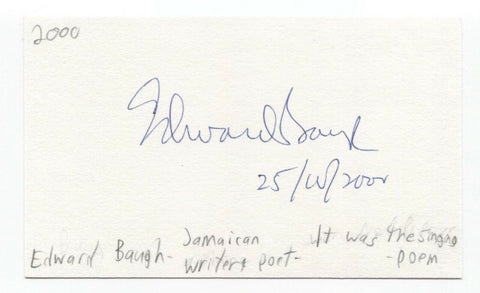 2000
Edward Baugh
25/10/2000
Edward Baugh- Jamaican writer+ poet- It was the singing -poem